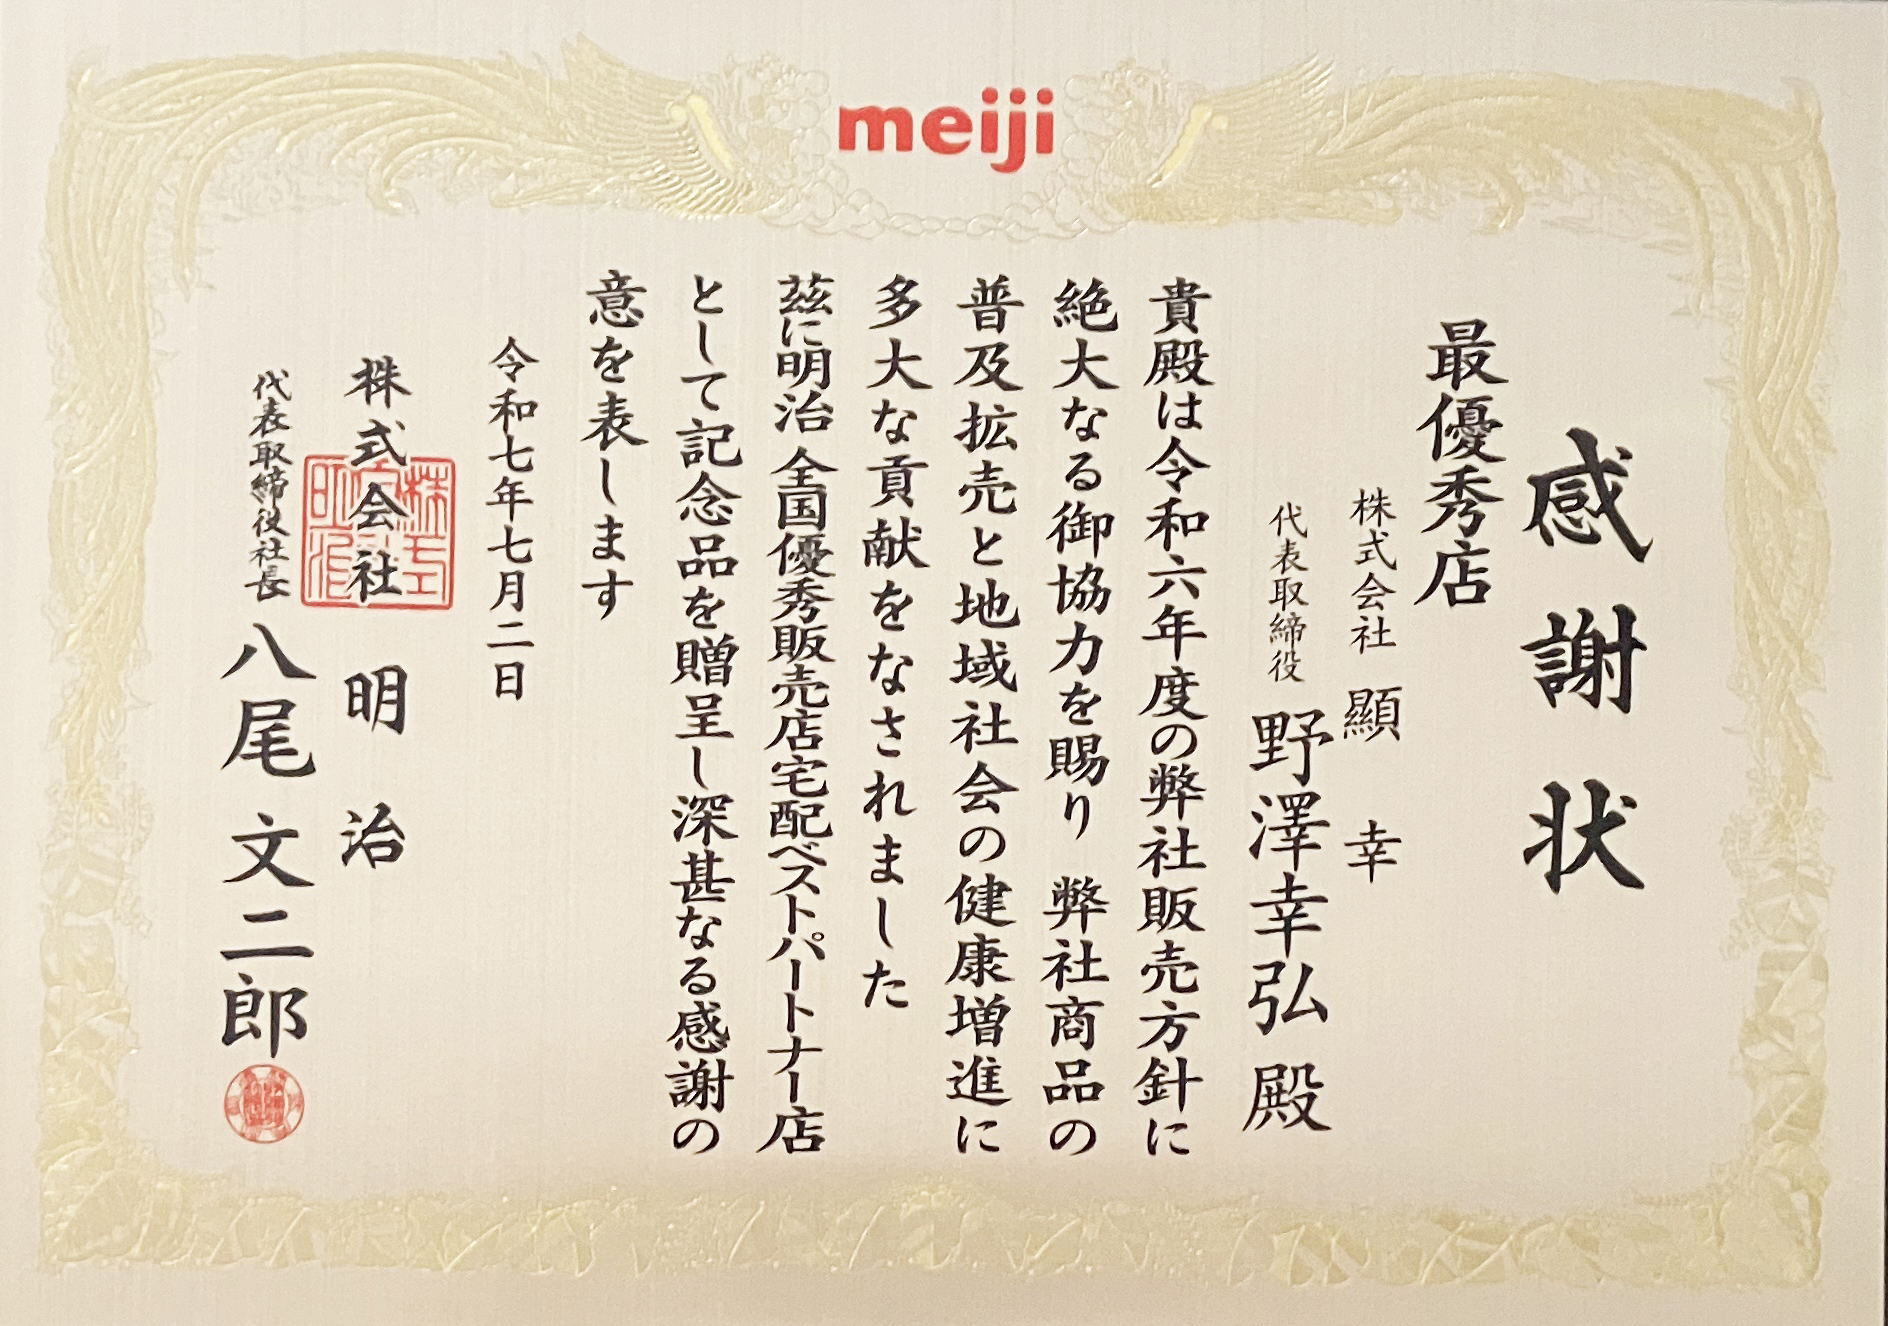 meiji
感謝状
最優秀店
株式会社 顯幸
代表取締役 野澤幸弘 殿
貴殿は令和六年度の弊社販売方針に
絶大なる御協力を賜り 弊社商品の
普及拡売と地域社会の健康増進に
多大な貢献をなされました
茲に明治 全国優秀販売店宅配ベストパートナー店
として記念品を贈呈し深甚なる感謝の
意を表します
令和七年七月二日
株式会社 明治
代表取締役社長 八尾文二郎